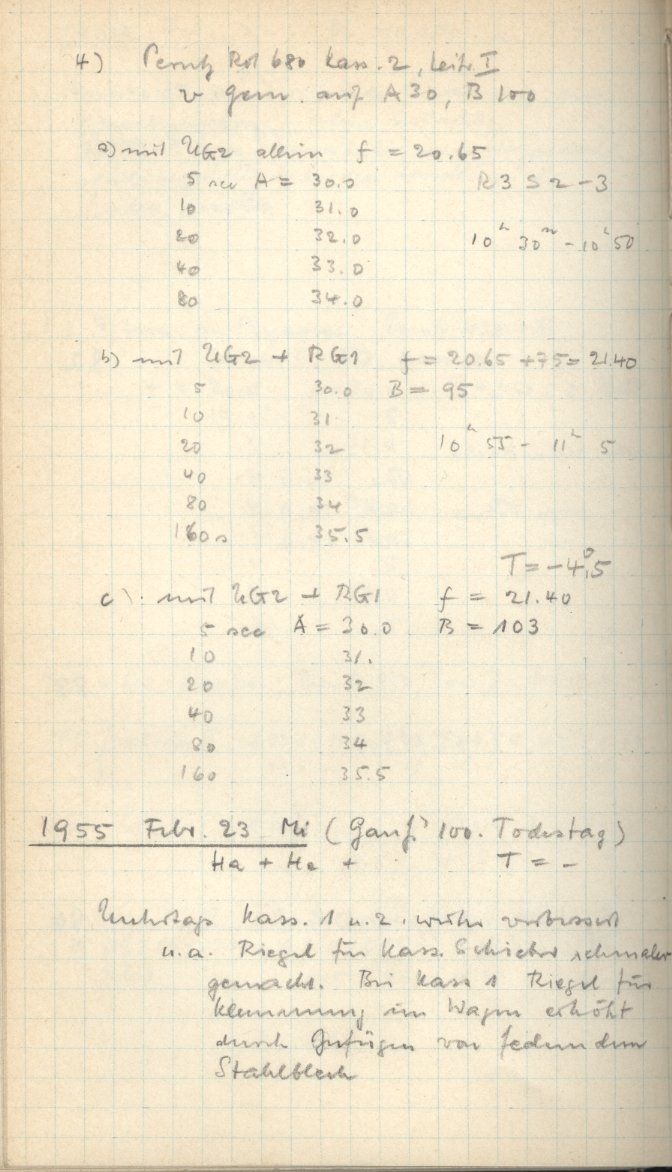 4) Perutz Rot 680 Kass. 2, Leitr. I
v gem. auf A 30, B 100
a) mit UG2 allein f = 20.65
5 sec A = 30.0 R3 S 2-3
10 31.0
20 32.0 10h 30m - 10h 50
40 33.0
80 34.0
b) mit UG2 + RG1 f = 20.65 + 75 = 21.40
5 30.0 B = 95
10 31
20 32 10h 55 - 11h 5
40 33
80 34
160s 35.5
T = -4°,5
c) mit UG2 + RG1 f = 21.40
5 sec A = 30.0 B = 103
10 31.
20 32
40 33
80 34
160 35.5
1955 Febr. 23 Mi (Gauß' 100. Todestag)
Ha + He + T = -
Kass. 1 u. 2. weiter verbessert
u.a. Riegel für Kass. Schieber schmaler
gemacht. Bei Kass 1 Riegel für
Klemmung im Wagen erhöht
durch von federndem
Stahlblech